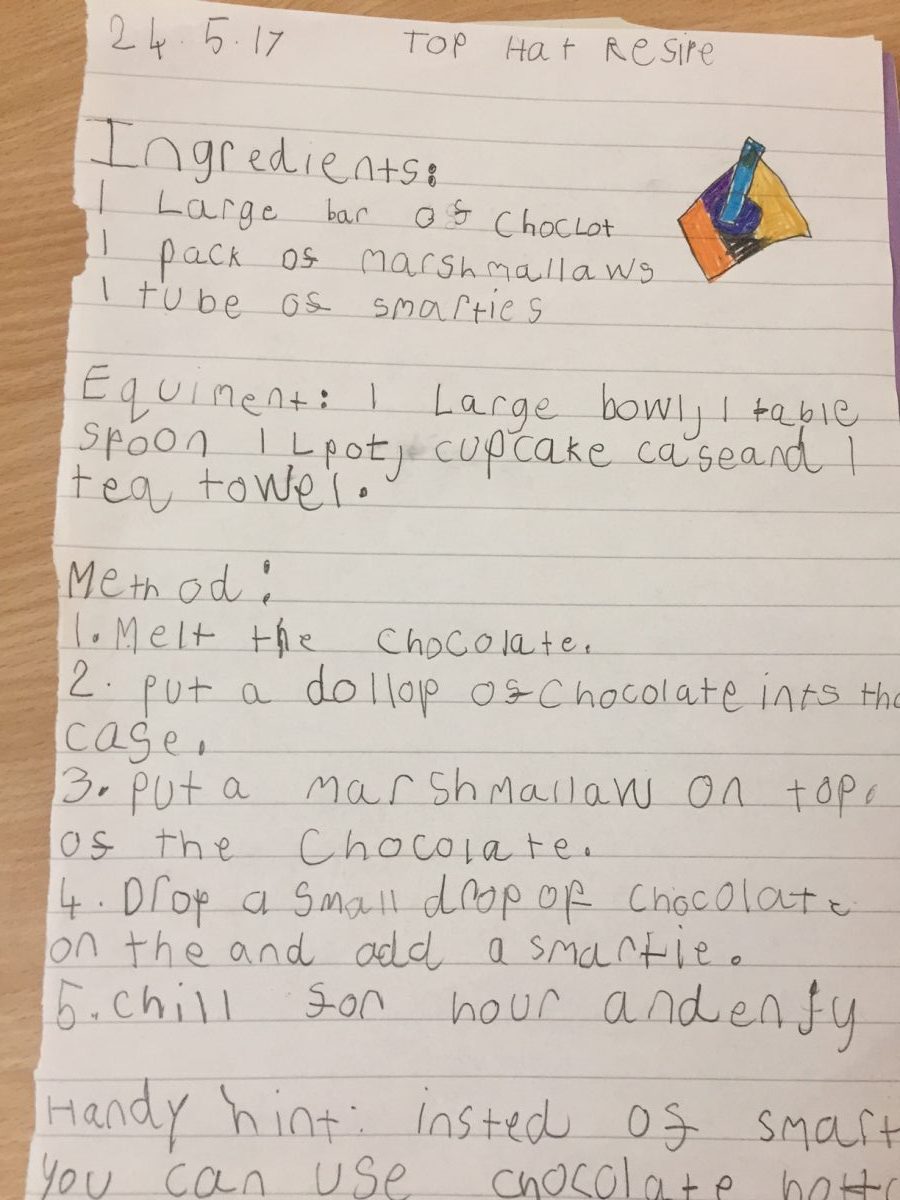 24.5.17 TOP Hat Resipe
Ingredients:
1 Large bar of Choclot
1 pack of marshmallaws
1 tube of smarties
Equiment: 1 Large bowl, 1 table
spoon 1 Lpot, cupcake caseand 1
tea towel.
Method:
1. Melt the Chocolate.
2. put a dollop of Chocolate into the
case.
3. put a marshmallaw on top.
of the Chocolate.
4. Drop a small drop of chocolate
on the and add a smartie.
5. chill for hour and enjy
Handy hint: insted of smart
you can use chocolate